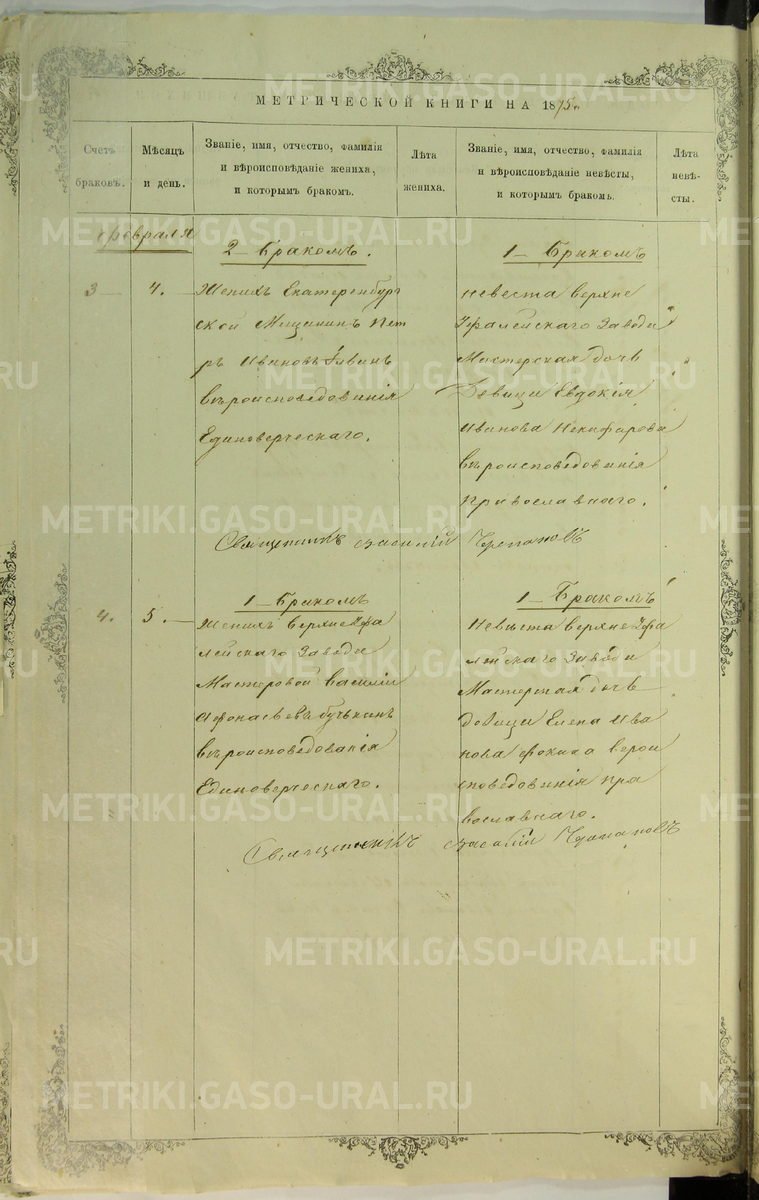 МЕТРИЧЕСКОЙ КНИГИ НА 1875.
Счетъ браковъ.
Мѣсяцъ и день.
Званіе, имя, отчество, фамилія
и вѣроисповѣданіе жениха,
и которымъ бракомъ.
Лѣта
жениха.
Званіе, имя, отчество, фамилія
и вѣроисповѣданіе невѣсты,
и которымъ бракомъ.
Лѣта
невѣ-
сты.
февраля
2 - Бракомъ.
3
4.
Женихъ Екатеренбург
ской Мещанинъ Пет
ръ Ивановъ
въроисповедованія
Единоверческаго.
1 - Бракомъ
невеста верхне
Уфалейскаго Завода
Мастерская дочь
Девица Евдокія
Иванова Некифарова
въроисповедованія
православнаго.
Священникъ Василий
4.
5.
1 - Бракомъ
Женихъ верхнеуфа
лейскаго Завода
Мастеровой василіи
Афонасьевъ
въроисповедованія
Единоверческаго.
1 - Бракомъ
Невѣста верхнеуфа
лейскаго Завода
Мастерская дочь
девица Елена Ива
нова верои
споведованія пра
вославнаго.
Священникъ Василий
METRIKI.GASO-URAL.RU